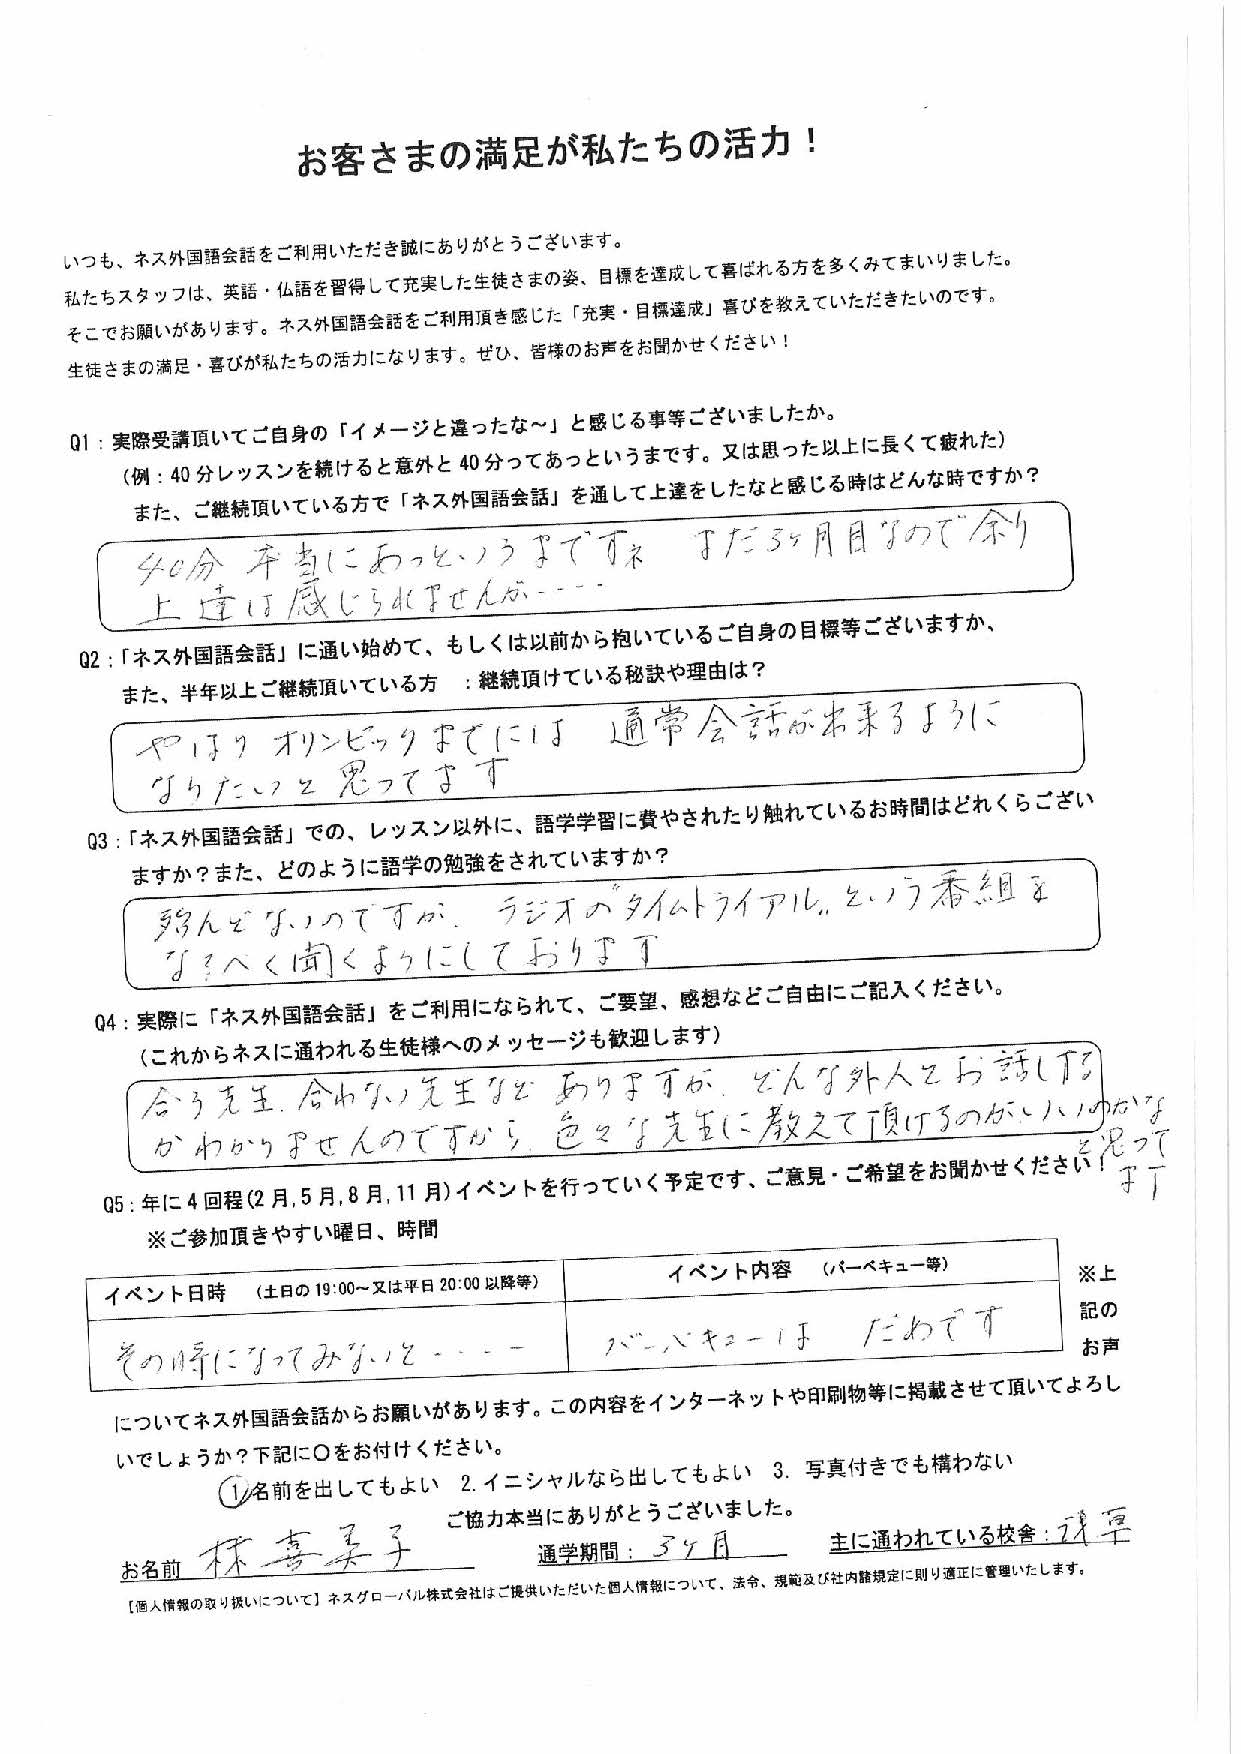 お客さまの満足が私たちの活力！
いつも、ネス外国語会話をご利用いただき誠にありがとうございます。
私たちスタッフは、英語・仏語を習得して充実した生徒さまの姿、目標を達成して喜ばれる方を多くみてまいりました。
そこでお願いがあります。ネス外国語会話をご利用頂き感じた「充実・目標達成」喜びを教えていただきたいのです。
生徒さまの満足・喜びが私たちの活力になります。ぜひ、皆様のお声をお聞かせください！
Q1：実際受講頂いてご自身の「イメージと違ったな～」と感じる事等ございましたか。
（例：40分レッスンを続けると意外と40分ってあっというまです。又は思った以上に長くて疲れた）
また、ご継続頂いている方で「ネス外国語会話」を通して上達をしたなと感じる時はどんな時ですか？
40分 本当にあっというまですネ まだ3ヶ月目なので余り
上達は感じられませんが‥‥
Q2：「ネス外国語会話」に通い始めて、もしくは以前から抱いているご自身の目標等ございますか、
また、半年以上ご継続頂いている方　：継続頂けている秘訣や理由は？
やはり オリンピックまでには 通常会話が出来るように
なりたいと思ってます
Q3：「ネス外国語会話」での、レッスン以外に、語学学習に費やされたり触れているお時間はどれくらござい
ますか？また、どのように語学の勉強をされていますか？
殆んどないのですが、ラジオの“タイムトライアル„という番組を
なるべく聞くようにしております
Q4：実際に「ネス外国語会話」をご利用になられて、ご要望、感想などご自由にご記入ください。
（これからネスに通われる生徒様へのメッセージも歓迎します）
合う先生、合わない先生など ありますが、どんな外人とお話しする
かわかりませんのですから、色々な先生に教えて頂けるのがいいのかな
と思って
ます
Q5：年に4回程（2月,5月,8月,11月）イベントを行っていく予定です、ご意見・ご希望をお聞かせください！
※ご参加頂きやすい曜日、時間
イベント日時　（土日の19:00～又は平日20:00以降等）　イベント内容　（バーベキュー等）　※上
記の
その時になってみないと‥‥　バーベキューは だめです
お声
についてネス外国語会話からお願いがあります。この内容をインターネットや印刷物等に掲載させて頂いてよろし
いでしょうか？下記に〇をお付けください。
①名前を出してもよい　2.イニシャルなら出してもよい　3. 写真付きでも構わない
ご協力本当にありがとうございました。
お名前 林 喜美子　通学期間： 3ヶ月　主に通われている校舎：浅草
【個人情報の取り扱いについて】ネスグローバル株式会社はご提供いただいた個人情報について、法令、規範及び社内諸規定に則り適正に管理いたします。